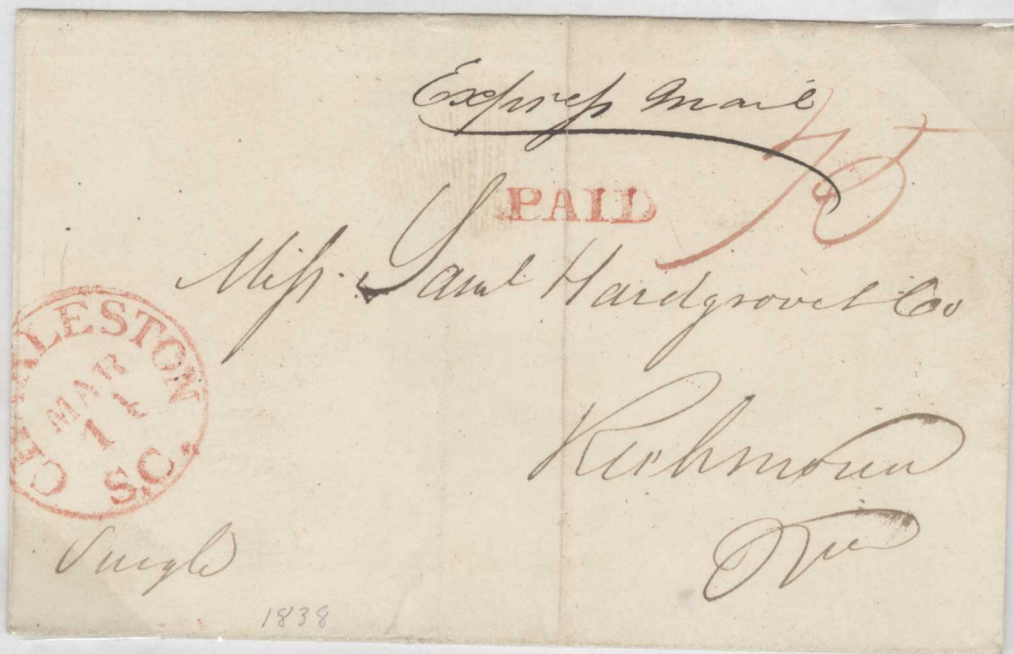 Express Mail
75
PAID
Mess. Saml Hardgrove & Co
Richmond
Via
CHARLESTON
MAR
11
S.C.
Single
1838